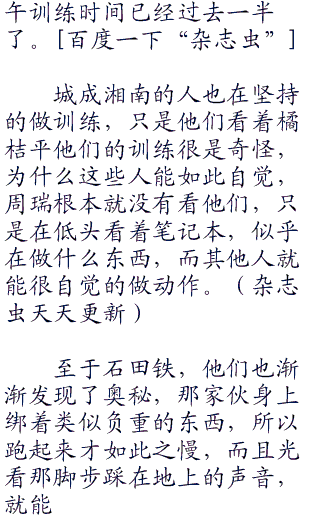 午训练时间已经过去一半
了。[百度一下“杂志虫”]
城成湘南的人也在坚持
的做训练，只是他们看着橘
桔平他们的训练很是奇怪，
为什么这些人能如此自觉，
周瑞根本就没有看他们，只
是在低头看着笔记本，似乎
在做什么东西，而其他人就
能很自觉的做动作。（杂志
虫天天更新）
至于石田铁，他们也渐
渐发现了奥秘，那家伙身上
绑着类似负重的东西，所以
跑起来才如此之慢，而且光
看那脚步踩在地上的声音，
就能